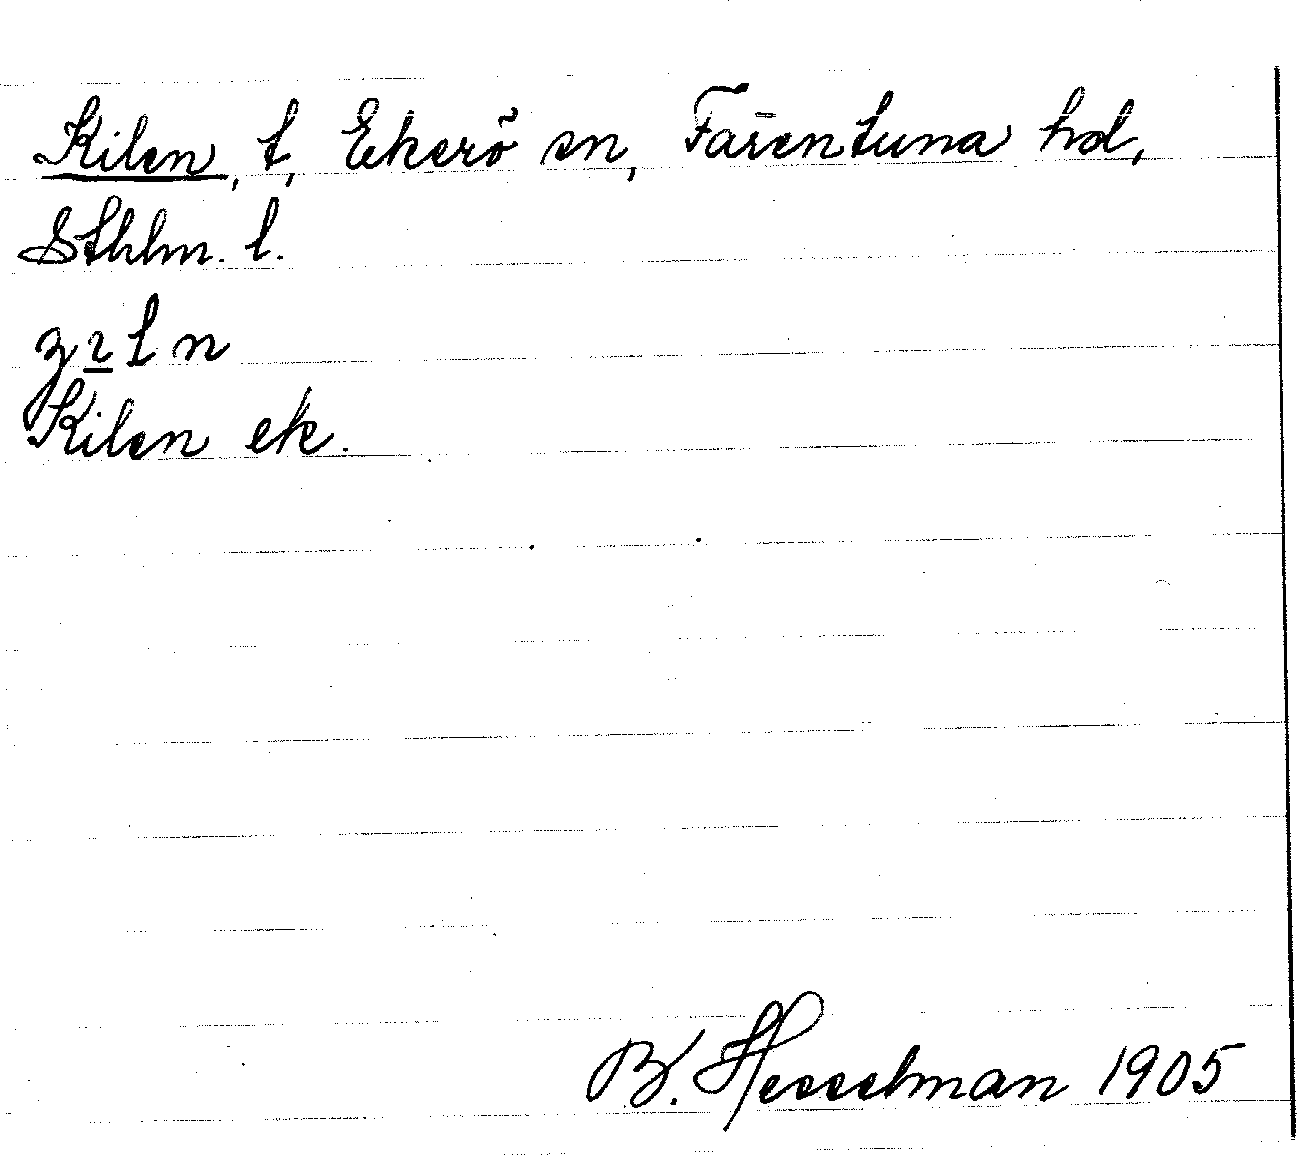 Kilen, t, Ekerö sn, Färentuna hd,
Sthlm. l.
Kilen ek.
B. Hesselman 1905